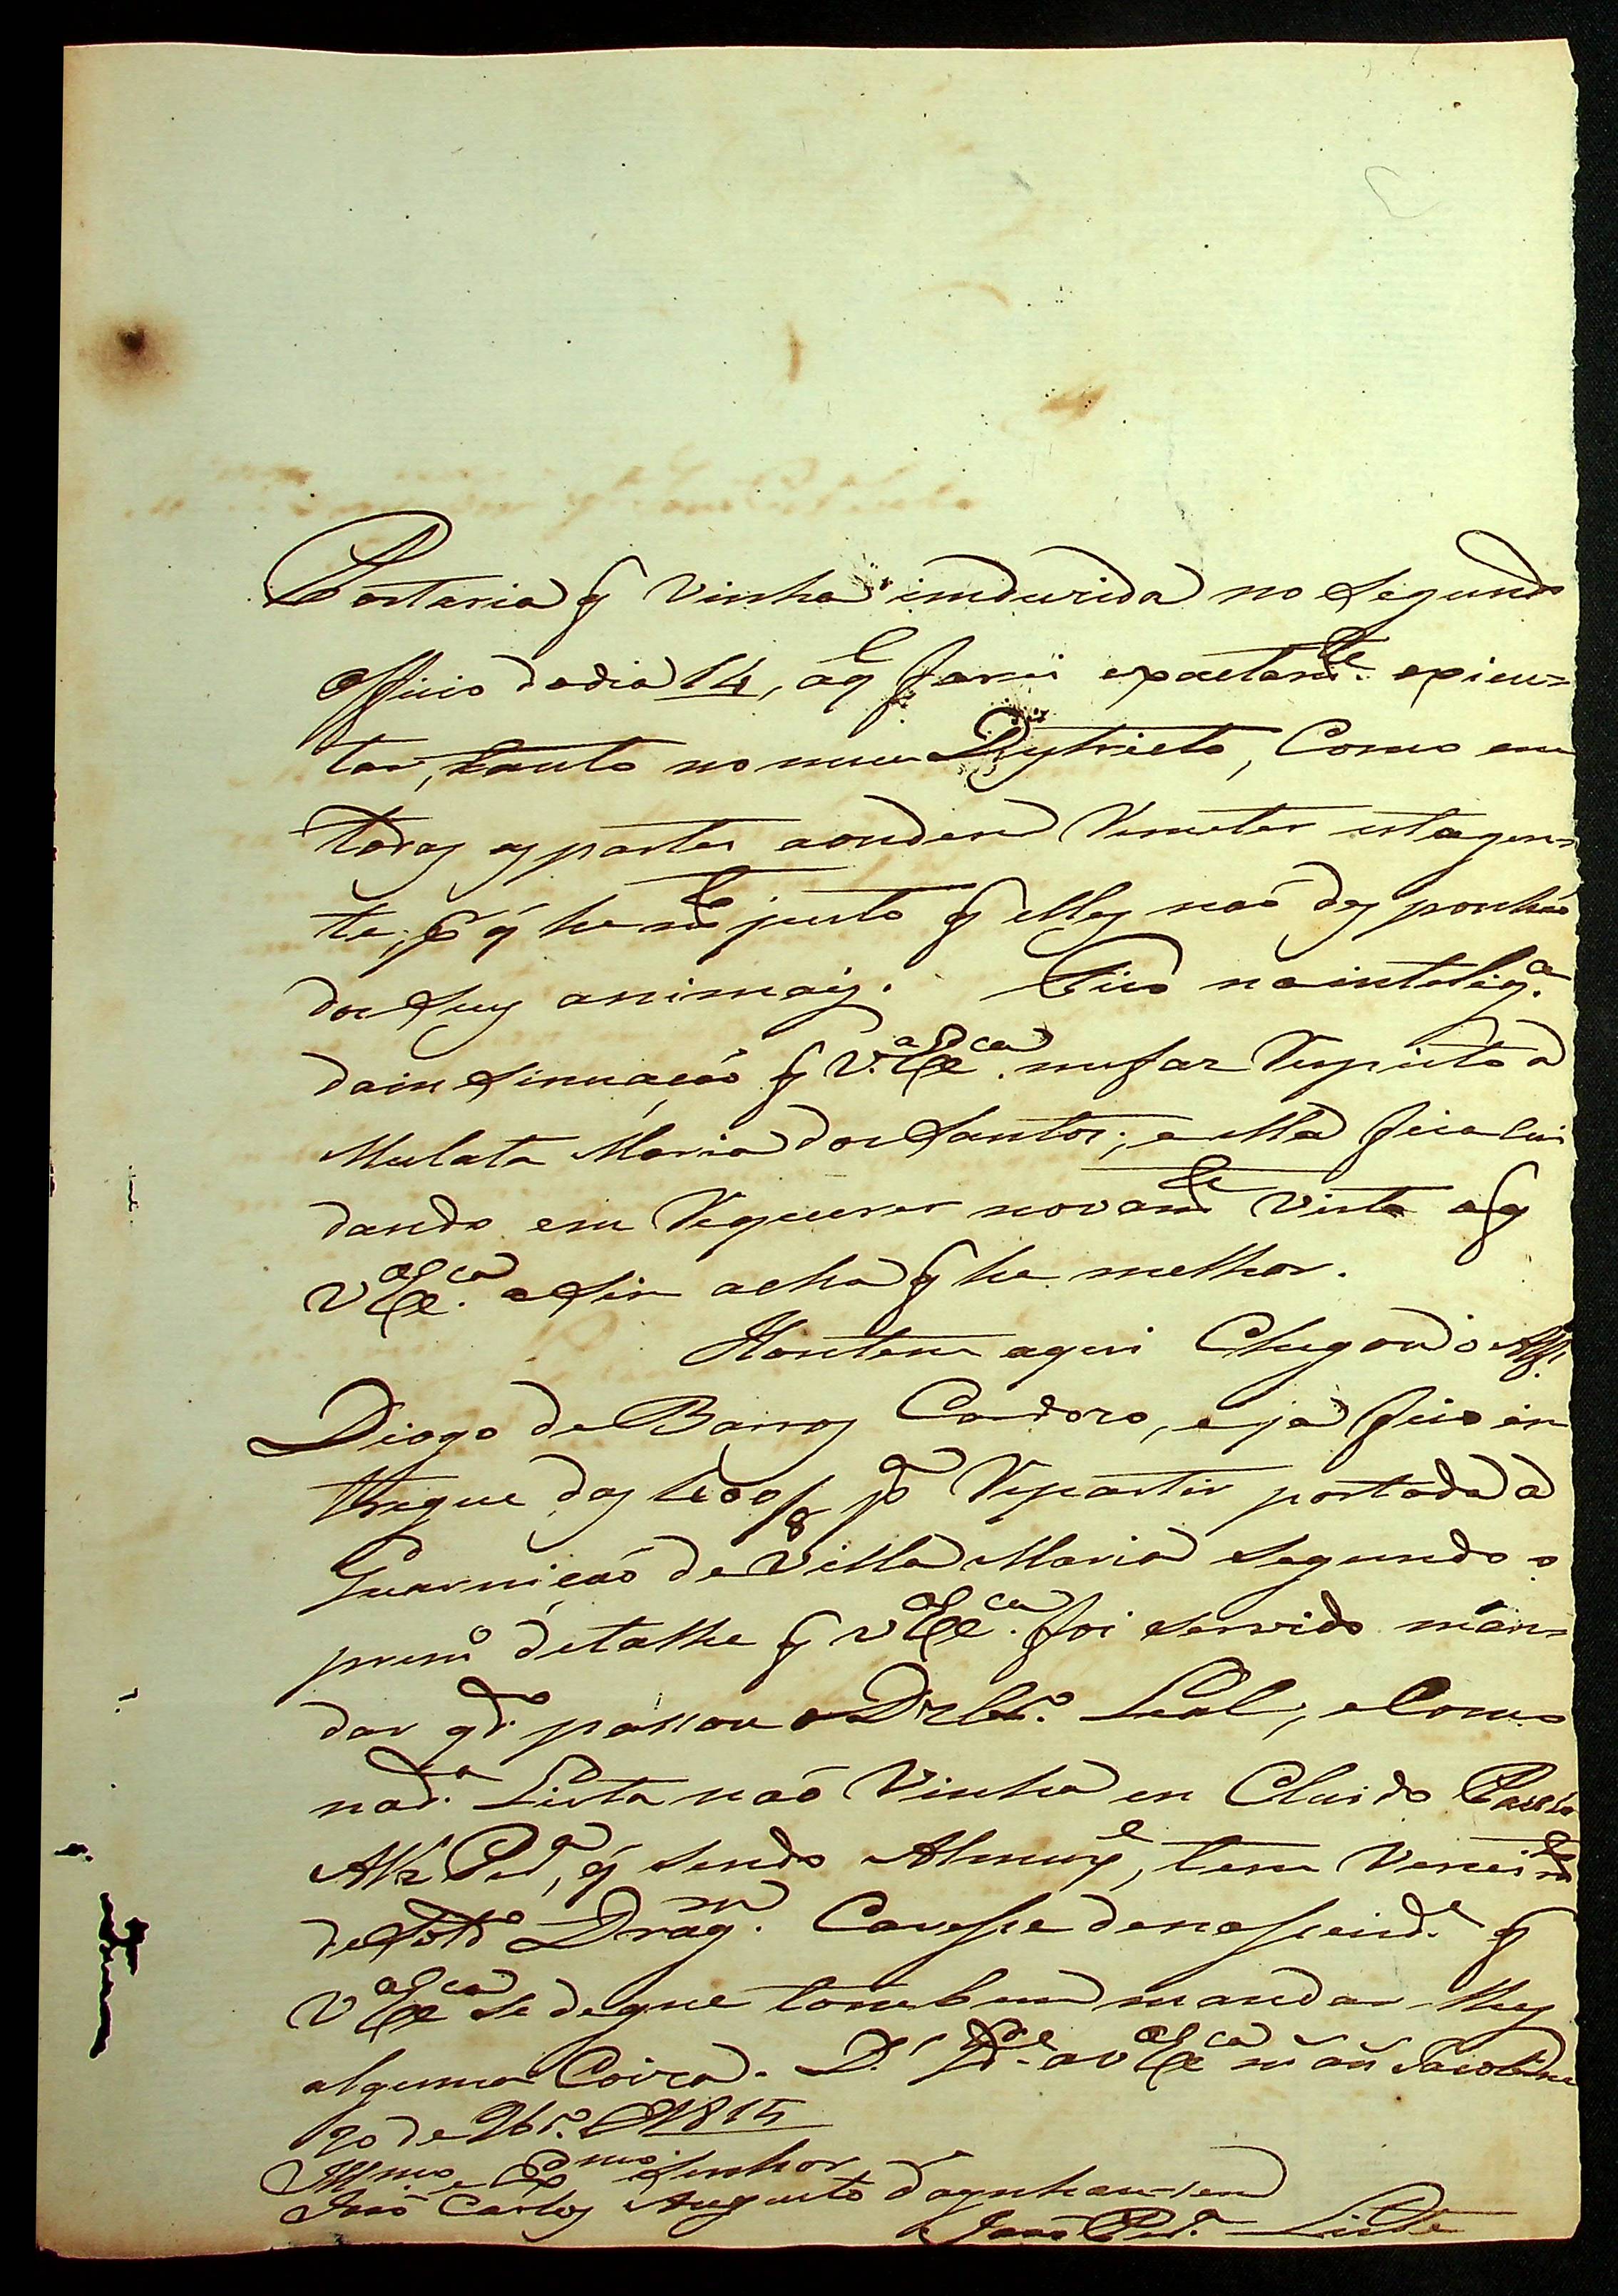 Portaria q̃ vinha inuduzida no segundo
officio do dia 14, aq.l farei exactam.te exicu=
tar, tanto no meu Destricto, Como em
todas as partes aonde se remeter esta gen=
te, p.r q̃ he m.to justo q̃ elles não desponhão
dos seus animaes. Fico na intelig.a
da insinuação q̃ V.a Ex.ca me faz respeito a
Mulata Maria dos Santos; e ella fica cui
dando em requerer novam.te visto oq̃
V.a Ex.ca asim acha q̃ he melhor.
Hontem aqui Chegou o Alf.s
Diogo de Barros Cardozo, e já fico en
tregue das 1200/8 p.a repartir por toda a
Guarnição de Villa Maria segundo o
prim.o detalhe q̃ V.a Ex.ca foi servido man=
dar q.do passou o Leal; e como
na d.a Lista não vinha en Cluido Paulo
Alz Per.a, q̃ sendo Almoxe, tem vencim.to
de Sold.o Drag.m Careçe de nesseçid.e q̃
V.a Ex.ca se degne tambem mandar lhes
alguma Coiza. D.s g.de a V.a Ex.ca m.s an.s Jacobina
20 de 9br.o de 1815
Ill.mo e Ex.mo Senhor
João Carlos Augusto d'Oynhausen
João Per.a Leite